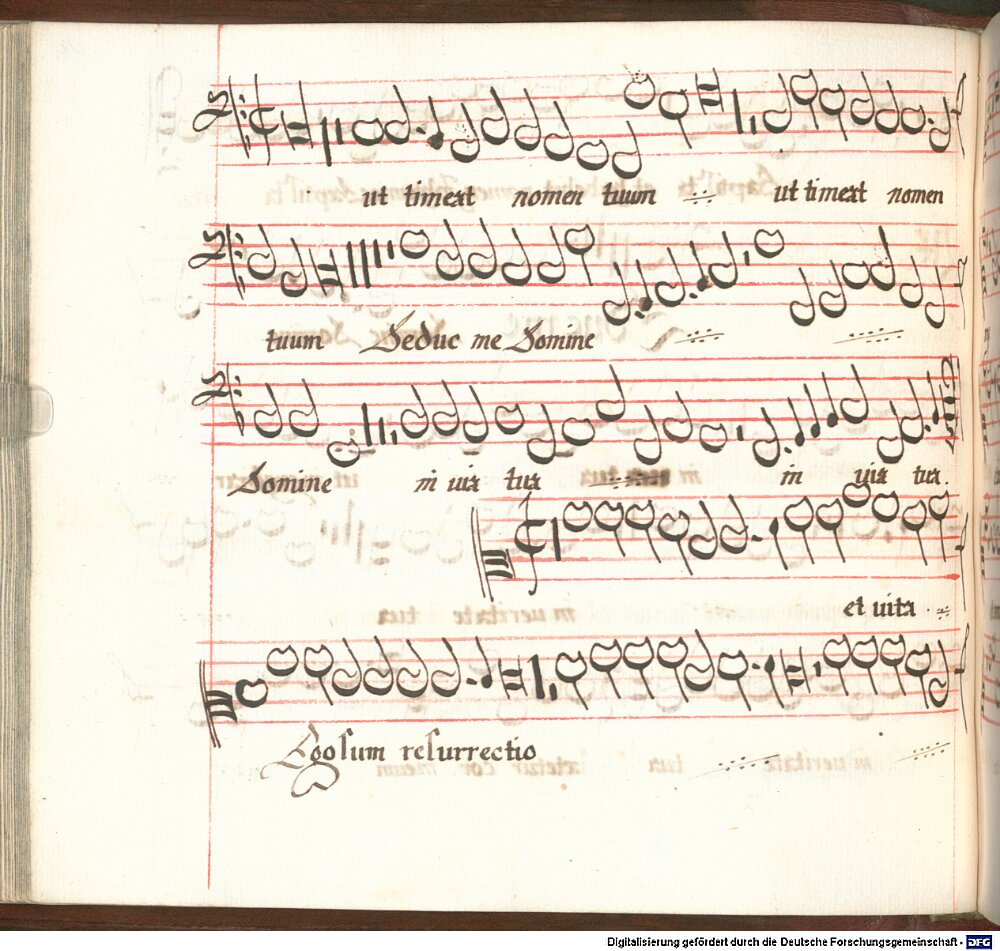 ut timeat nomen tuum ut timeat nomen
tuum Deduc me Domine
Domine in uia tua in uia tua.
et uita
Ego sum resurrectio
Digitalisierung gefördert durch die Deutsche Forschungsgemeinschaft - DFG